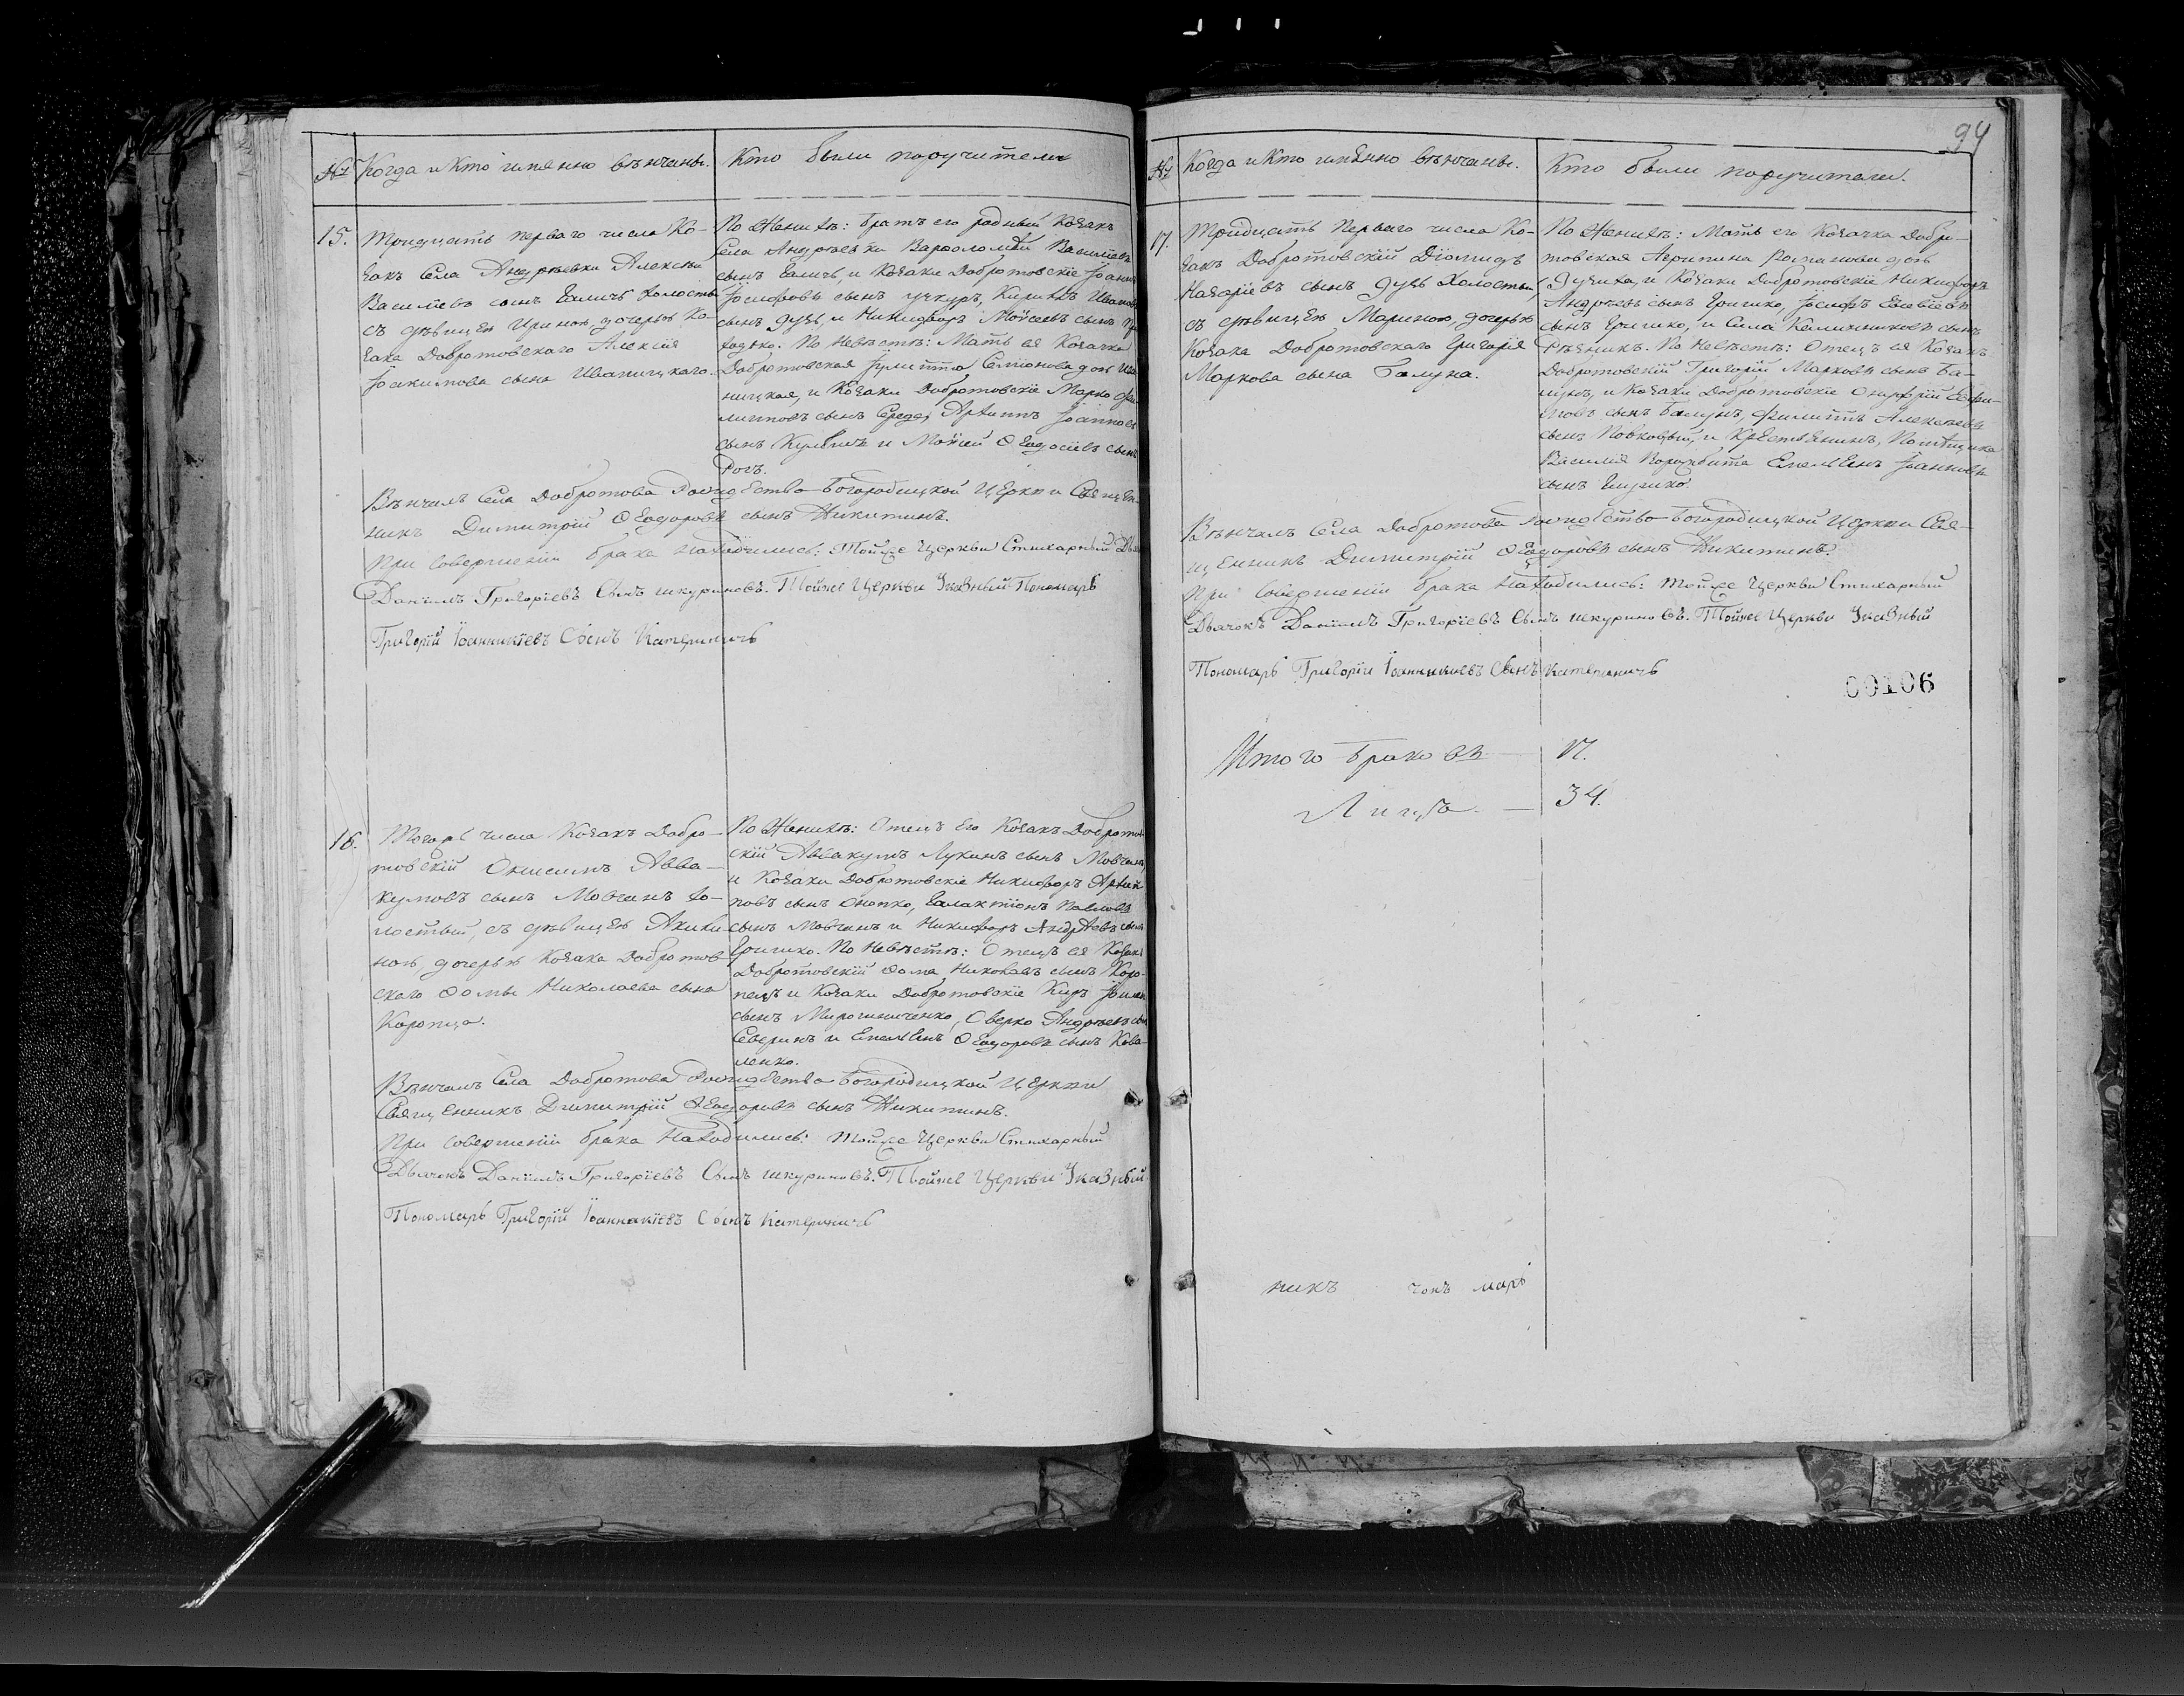 № Когда и Кто имянно вѣнчаны.
Кто были поручители
15. Тридцать перваго числа Ко-
закъ Села Андреевки Алексѣй
Василіевъ сынъ Галичъ холостый
съ дѣвицею Ириною, дочерью Ко-
зака Добротовскаго Алексія
Іоакимова сына Иваницкаго.
По Женихѣ: братъ его родный Козакъ
Села Андреевки Варфоломѣй Василіевъ
сынъ Галичъ, и Козаки Добротовскіе
Іосифовъ сынъ Кириллъ Ивановъ
сынъ и Никифоръ Моѵсеевъ сынъ
По Невѣстѣ: Мать ея Козачка
Добротовская Іулитта Симіонова дочь Ива-
ницкая, и Козаки Добротовскіе Марко Фи-
липповъ сынъ Середа, Архиппъ Іоанновъ
сынъ и Моѵсей Ѳеодосіевъ сынъ
Рогъ.
Вѣнчалъ Села Добротова Рождество-Богородицкой Церкви Священ-
никъ Димитрій Ѳеодоровъ сынъ Никитинъ.
При совершеніи брака находились: Тойже Церкви Стихарный
Даніилъ Григоріевъ Сынъ Шкуриновъ. Тойже Церкви Указный Пономарь
Григорій Іоанникіевъ Сынъ Катериничъ
16. Тогожъ числа Козакъ Добро-
товскій Онисимъ Авва-
кумовъ сынъ Мовчанъ хо-
лостый, съ дѣвицею Акили-
ною, дочерью Козака Добротов-
скаго Ѳомы Николаева сына
Коропца.
По Женихѣ: Отецъ его Козакъ Добротов-
скій Аввакумъ Лукинъ сынъ Мовчанъ
и Козаки Добротовскіе Никифоръ Архип-
повъ сынъ Онопко, Галактіонъ Павловъ
сынъ Мовчанъ и Никифоръ Андреевъ сынъ
Гришко. По Невѣстѣ: Отецъ ея Козакъ
Добротовскій Ѳома Николаевъ сынъ Коро-
пецъ и Козаки Добротовскіе Киръ
сынъ Мирошниченко, Оверко Андреевъ сынъ
Северинъ и Емеліянъ Ѳеодоровъ сынъ Кова-
ленко.
Вѣнчалъ Села Добротова Рождество-Богородицкой Церкви
Священникъ Димитрій Ѳеодоровъ сынъ Никитинъ.
При совершеніи брака находились: Тойже Церкви Стихарный
Дьячокъ Даніилъ Григоріевъ Сынъ Шкуриновъ. Тойже Церкви Указный
Пономарь Григорій Іоанникіевъ Сынъ Катериничъ
94
№ Когда и Кто имянно вѣнчаны.
Кто были поручители.
17. Тридцать Перваго числа Ко-
закъ Добротовскій Діомидъ
Назаріевъ сынъ Холостый,
съ дѣвицею Мариною, дочерью
Козака Добротовскаго Григорія
Маркова сына Балуна.
По Женихѣ: Мать его Козачка Добро-
товская Агрипина Романова дочь
и Козаки Добротовскіе Никифоръ
Андреевъ сынъ Гришко, Іосифъ Евсевіевъ
сынъ Гришко, и Сила Калинниковъ сынъ
По Невѣстѣ: Отецъ ея Козакъ
Добротовскій Григорій Марковъ сынъ Ба-
лунъ, и Козаки Добротовскіе Онуфрій
сынъ Балунъ, Филиппъ Алексѣевъ
сынъ и Крестьянинъ, Помѣщика
Василія Емельянъ Іоанновъ
сынъ
Вѣнчалъ Села Добротова Рождество-Богородицкой Церкви Свя-
щенникъ Димитрій Ѳеодоровъ сынъ Никитинъ.
При совершеніи брака находились: тойже Церкви Стихарный
Дьячокъ Даніилъ Григоріевъ Сынъ Шкуриновъ. Тойже Церкви Указный
Пономарь Григорій Іоанникіевъ Сынъ Катериничъ
00106
Итого браковъ — 17.
Лицъ — 34.
никъ чокъ марь